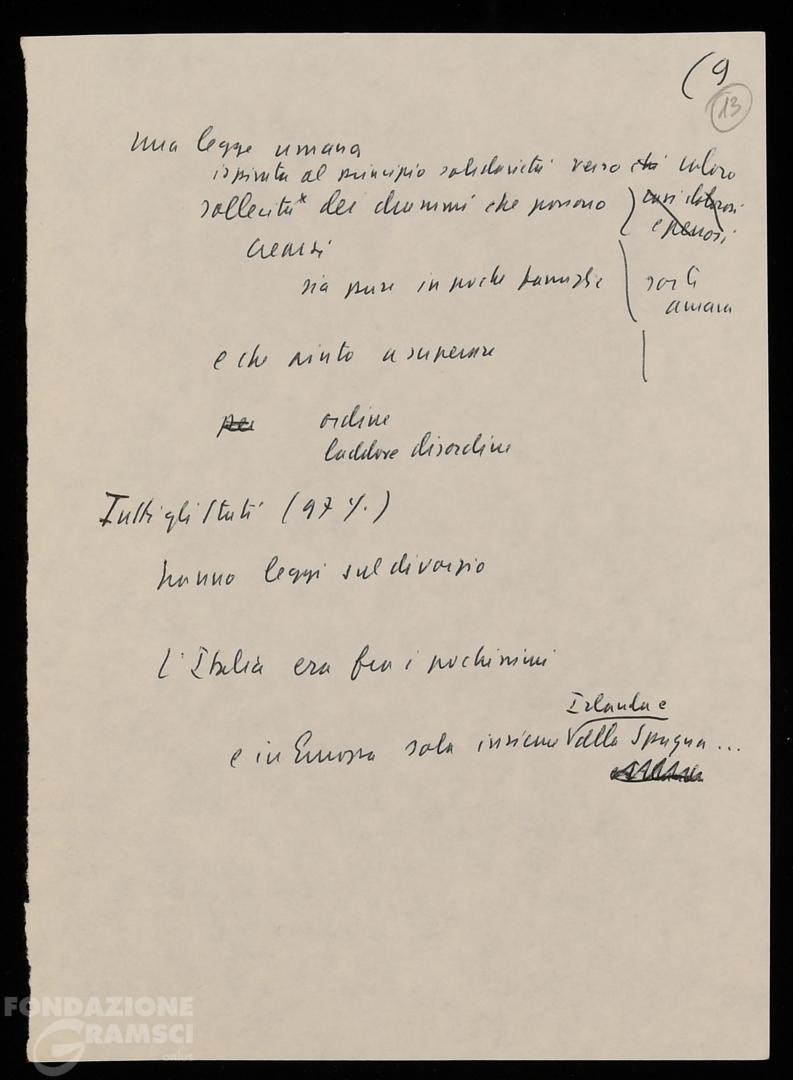 (9
13
una legge umana
ispirata al principio solidarietà verso chi coloro
sollecita* dei drammi che possono
casi dolorosi
e penosi
crearsi
sia pure in poche famiglie
sorti
amara
e che aiuto a superare
per ordine
laddove disordine
Tutti gli Stati (97%.)
hanno leggi sul divorzio
L'Italia era fra i pochissimi
Irlanda e
e in Europa sola insieme alla Spagna...
FONDAZIONE
GRAMSCI
onlus